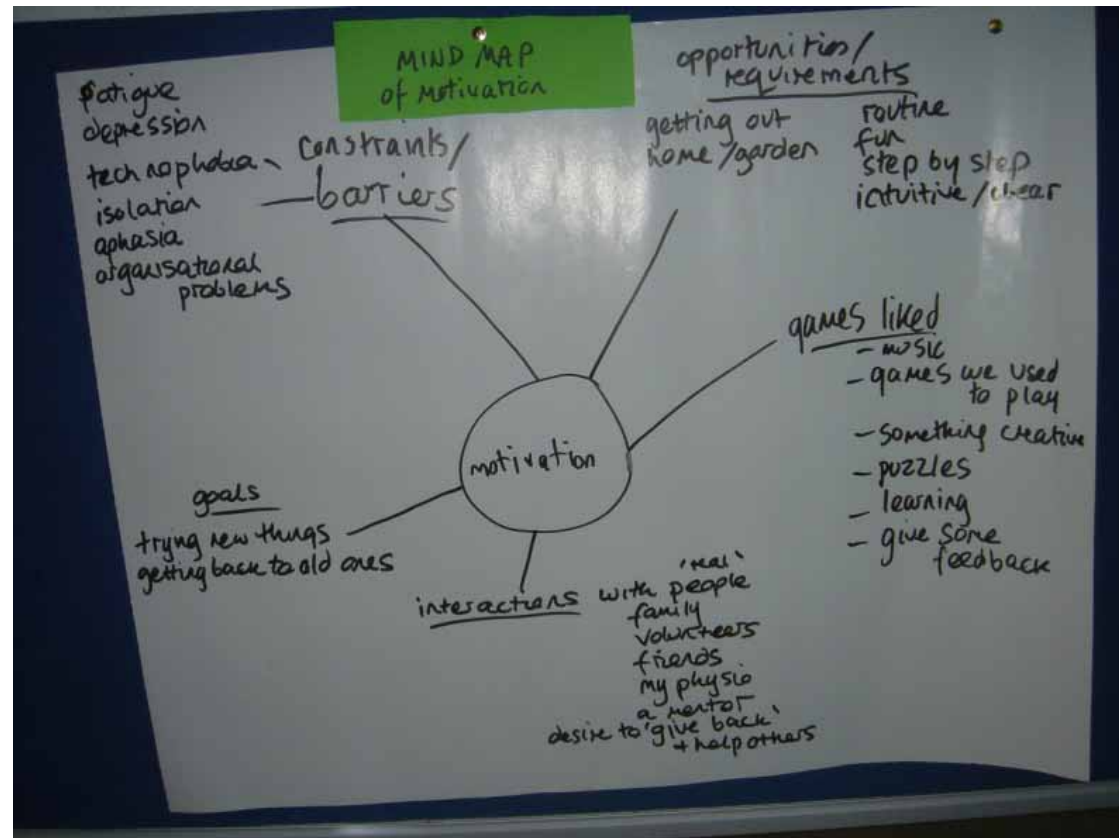 MIND MAP
of motivation
fatigue
depression
technophobia
isolation
aphasia
organisational
problems
constraints/
barriers
opportunities/
requirements
getting out
home/garden
routine
fun
step by step
intuitive/clear
games liked
- music
- games we used
to play
- something creative
- puzzles
- learning
- give some
feedback
motivation
goals
trying new things
getting back to old ones
interactions
'real'
with people
family
volunteers
friends
my physio
a mentor
desire to 'give back'
+ help others